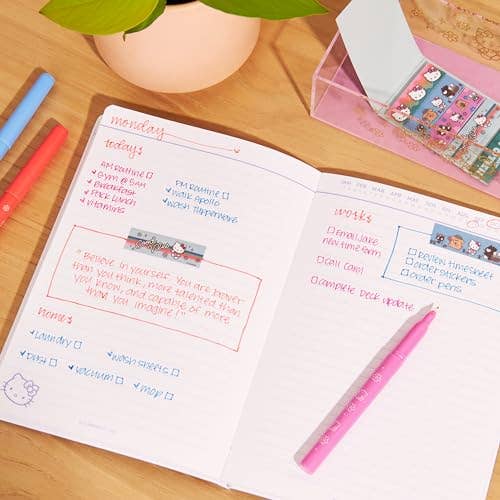 monday
today:
AM ROUTINE
Gym @ 5AM
Breakfast
Pack Lunch
Vitamins
PM ROUTINE
Walk Apollo
Wash Tupperware
"Believe in yourself. You are braver
than you think, more talented than
you know, and capable of more
than you imagine!"
home:
Laundry
Wash sheets
Dust
Vacuum
Mop
JAN FEB MAR APR MAY JUN JUL AUG
works
Email Jake
new time form
Call Carol
Complete Deck update
Review timesheet
order stickers
order pens